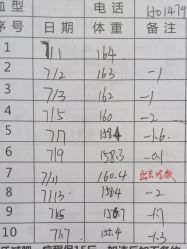 血型 电话 1501479
序号 日期 体重 备注
1 7/1 164
2 7/2 163 -1
3 7/3 162 -1
4 7/5 160 -2
5 7/7 158.4 -1.6
6 7/9 158.3 -0.1
7 7/11 160.4
8 7/13 158.4 -2
9 7/15
10 7/17 -1.3